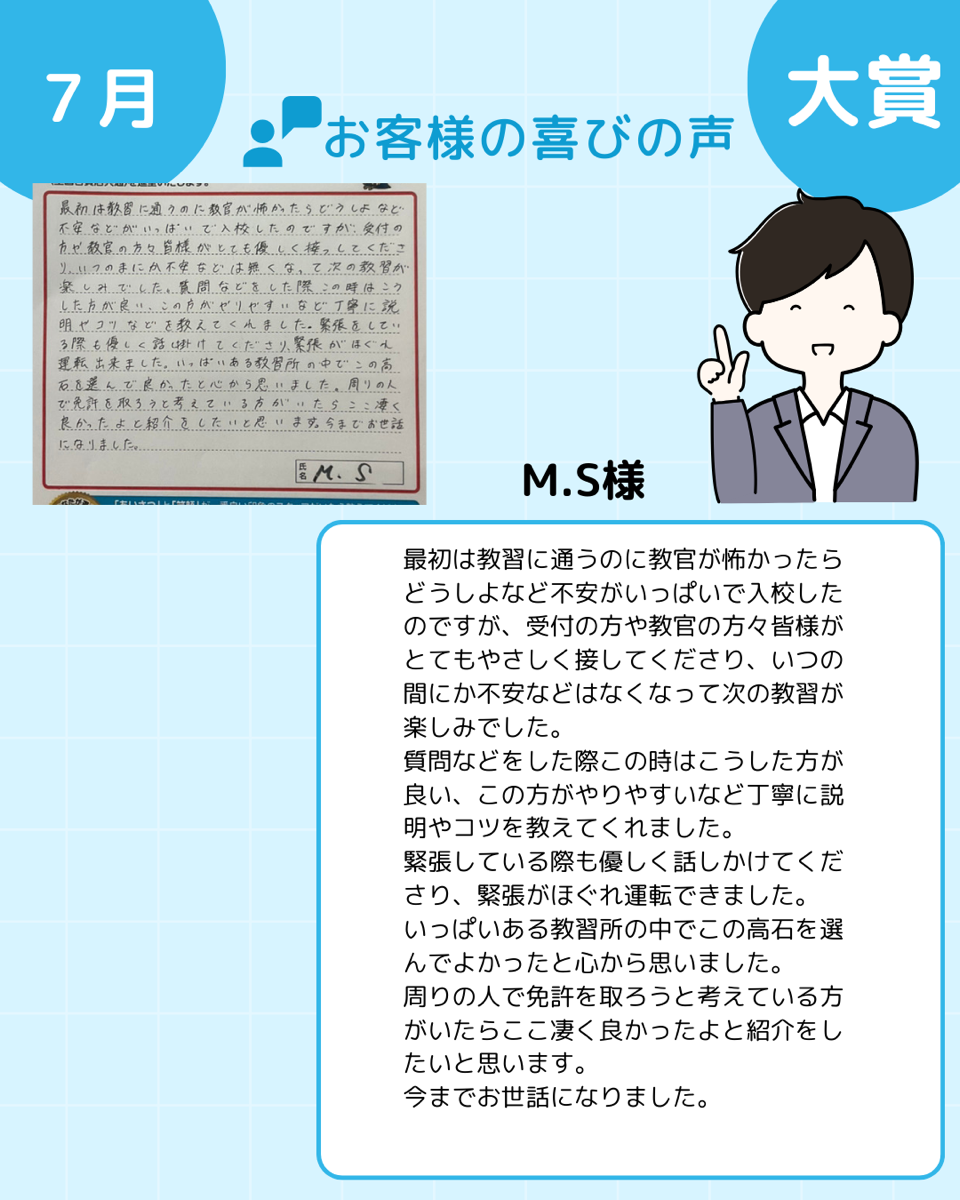 7月
大賞
お客様の喜びの声
最初は教習に通うのに教官が怖かったらどうしよなど
不安などがいっぱいで入校したのですが、受付の
方や教官の方々皆様がとても優しく接っしてくださ
り、いつのまにか不安などは無くなって次の教習が
楽しみでした。質問などをした際この時はこう
した方が良い、この方がやりやすいなど丁寧に説
明やコツなどを教えてくれました。緊張をしてい
る際も優しく話し掛けてくださり、緊張がほぐれ
運転出来ました。いっぱいある教習所の中でこの高
石を選んで良かったと心から思いました。周りの人
で免許を取ろうと考えている方がいたらここ凄く
良かったよと紹介をしたいと思います。今までお世話
になりました。
氏名 M.S
M.S様
最初は教習に通うのに教官が怖かったら
どうしよなど不安がいっぱいで入校した
のですが、受付の方や教官の方々皆様が
とてもやさしく接してくださり、いつの
間にか不安などはなくなって次の教習が
楽しみでした。
質問などをした際この時はこうした方が
良い、この方がやりやすいなど丁寧に説
明やコツを教えてくれました。
緊張している際も優しく話しかけてくだ
さり、緊張がほぐれ運転できました。
いっぱいある教習所の中でこの高石を選
んでよかったと心から思いました。
周りの人で免許を取ろうと考えている方
がいたらここ凄く良かったよと紹介をし
たいと思います。
今までお世話になりました。